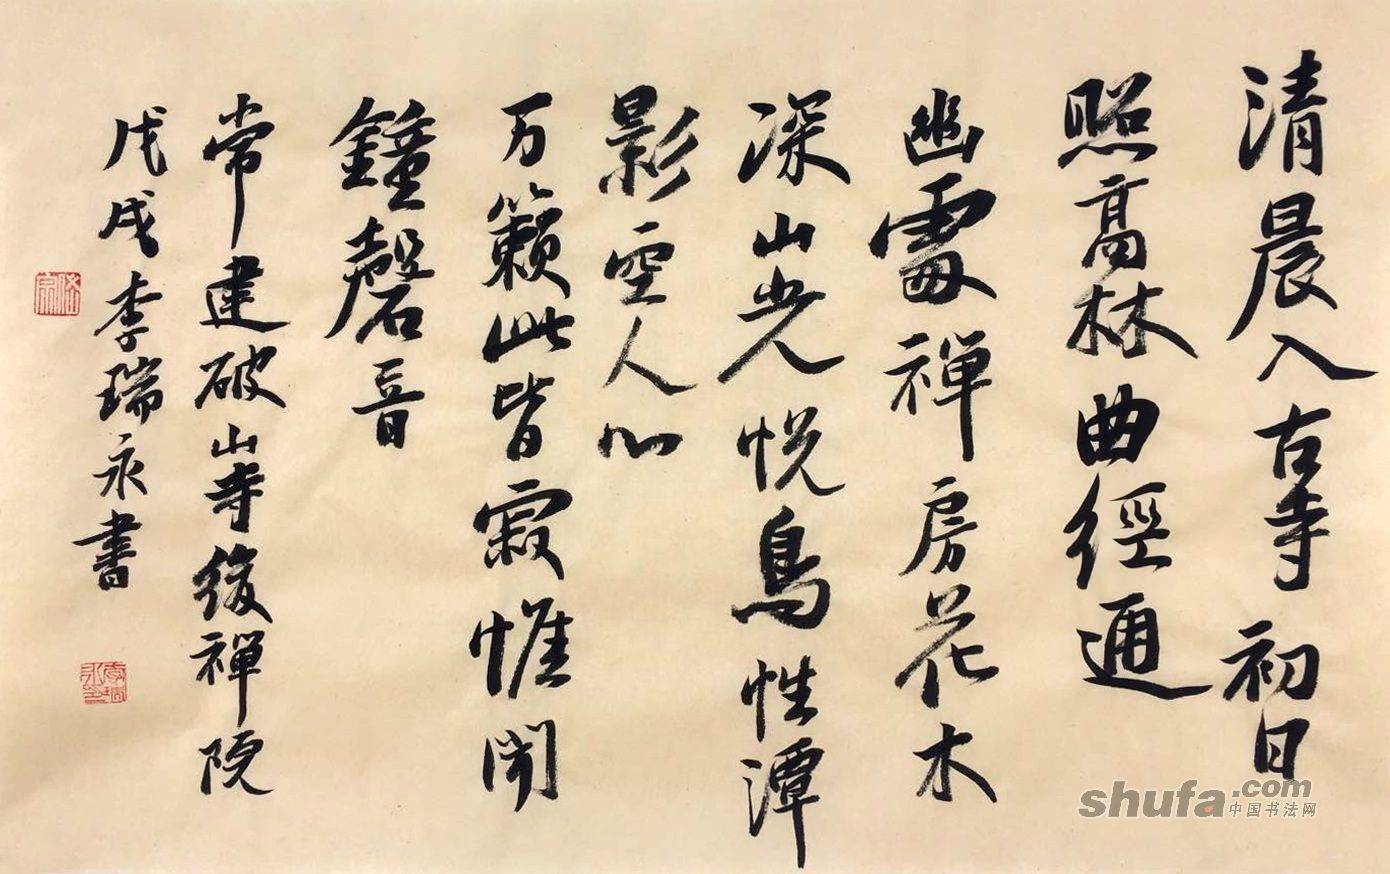 清晨入古寺初日
照高林曲徑通
幽處禪房花木
深山光悦鳥性潭
影空人心
万籟此皆寂惟聞
鐘磬音
常建破山寺後禪院
戊戌李瑞永書
shufa.com
中国书法网